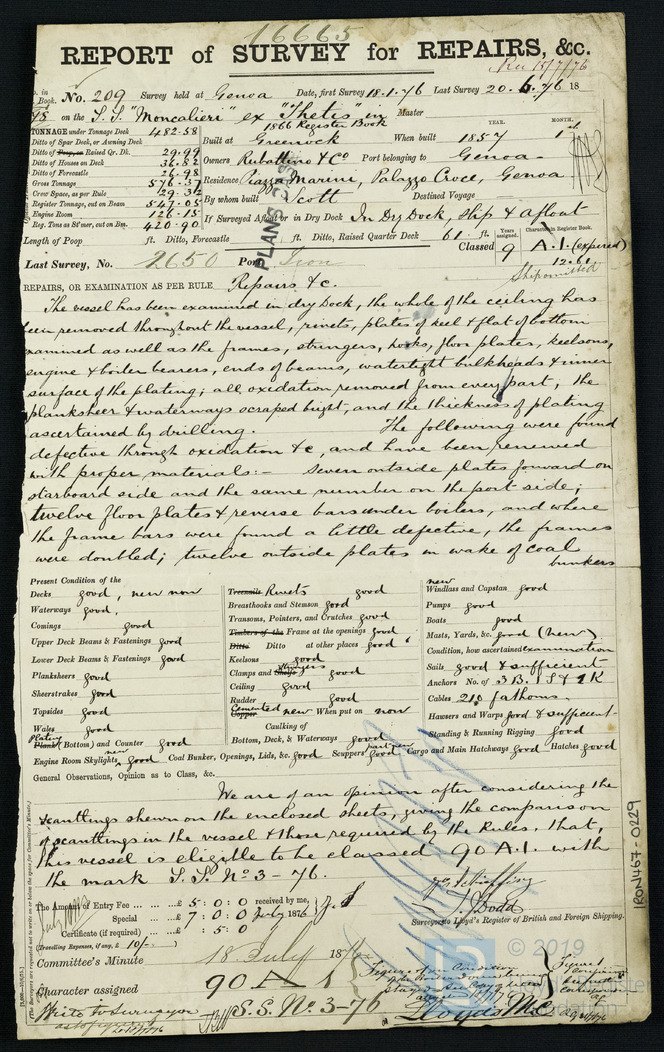 16665
REPORT of SURVEY for REPAIRS, &c.
Rec 15/7/76
No. 209 Survey held at Genoa Date, first Survey 18.1.76 Last Survey 20.6.76 18
on the S.S. "Moncalieri" ex "Thetis" in Master
1866 Register Book
TONNAGE under Tonnage Deck 482.58
Ditto of Spar Deck, or Awning Deck
Ditto of Poop, or Raised Qr. Dk. 29.99
Ditto of Houses on Deck 36.82
Ditto of Forecastle 26.98
Gross Tonnage 576.37
Crew Space, as per Rule 29.32
Register Tonnage, out on Beam 547.05
Engine Room 126.15
Reg. Tons as St'mer, cut on Bm. 420.90
YEAR. MONTH.
Built at Greenock When built 1857 1st
Owners Rubattino & Co Port belonging to Genoa
Residence Piazza Marini, Palazzo Croce, Genoa
By whom built Scott Destined Voyage
If Surveyed Afloat or in Dry Dock In Dry Dock, Slip & Afloat
Length of Poop ft. Ditto, Forecastle ft. Ditto, Raised Quarter Deck 61 ft.
Years assigned. Character in Register Book.
Classed 9 A.1. (expired)
12.61
Ship omitted
Last Survey, No. 2650 Port
REPAIRS, OR EXAMINATION AS PER RULE Repairs &c.
The vessel has been examined in dry Dock, the whole of the ceiling has
been removed throughout the vessel, rivets, plates of keel & flat of bottom
examined as well as the frames, stringers, hooks, floor plates, keelsons,
engine & boiler bearers, ends of beams, watertight bulkheads & inner
surface of the plating; all oxidation removed from every part, the
planksheer & waterways scraped bright, and the thickness of plating
ascertained by drilling. The following were found
defective through oxidation &c, and have been renewed
with proper materials:- Seven outside plates forward on
starboard side and the same number on the port side;
twelve floor plates & reverse bars under boilers, and where
the frame bars were found a little defective, the frames
were doubled; twelve outside plates in wake of coal
bunkers
Present Condition of the
Decks good, new now
Waterways good,
Comings good
Upper Deck Beams & Fastenings good
Lower Deck Beams & Fastenings good
Planksheers good
Sheerstrakes good
Topsides good
Wales good
Plating
Plank (Bottom) and Counter good
new
Engine Room Skylights good Coal Bunker, Openings, Lids, &c. good Scuppers part new good Cargo and Main Hatchways good Hatches good
Treenails Rivets good
Breasthooks and Stemson good
Transoms, Pointers, and Crutches good
Timbers of the Frame at the openings good
Ditto Ditto at other places good
Keelsons good
Stringers
Clamps and Shelfs good
Ceiling good
Rudder good
Cemented
Copper new When put on now
Caulking of
Bottom, Deck, & Waterways good
new
Windlass and Capstan good
Pumps good
Boats good
Masts, Yards, &c. good (new)
Condition, how ascertained examination
Sails good & sufficient
Anchors No. of 3 B. 1 S & 1 K
Cables 210 fathoms.
Hawsers and Warps good & sufficient
Standing & Running Rigging good
General Observations, Opinion as to Class, &c.
We are of an opinion after considering the
scantlings shewn on the enclosed sheets, giving the comparison
of scantlings in the vessel & those required by the Rules, that,
this vessel is eligible to be classed 90 A.1. with
the mark S.S. No 3-76.
The Amount of Entry Fee ... £ 5 : 0 : 0 received by me,
Special ... £ 7 : 0 : 0 July 1876
Certificate (if required) ... £ : 5 : 0
(Travelling Expenses, if any, £ 10/-
J. Dodd
Surveyor to Lloyd's Register of British and Foreign Shipping.
Committee's Minute 18 July 1876
Character assigned 90 A 1
S.S. No 3-76
Write to Surveyor
Lloyds M.C.
IRON467-0229
© 2019